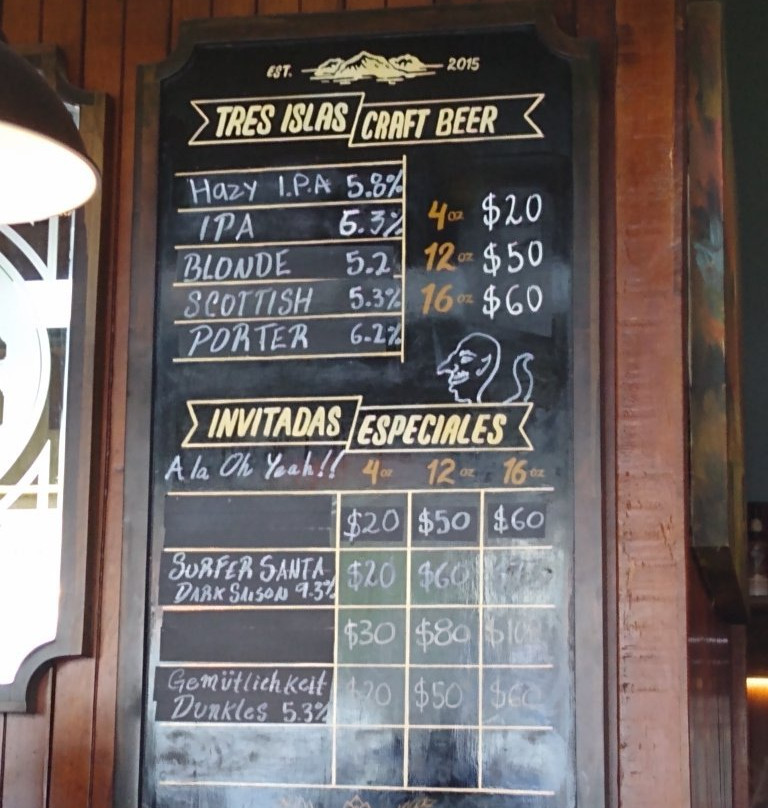 EST. 2015
TRES ISLAS CRAFT BEER
Hazy I.P.A 5.8%
IPA 6.3%
BLONDE 5.2
SCOTTISH 5.3%
PORTER 6.2%
4oz $20
12oz $50
16oz $60
INVITADAS ESPECIALES
A la Oh Yeah!! 4oz 12oz 16oz
$20 $50 $60
SURFER SANTA
DARK SAISON 9.3% $20 $60
$30 $80
Gemütlichkeit
Dunkles 5.3% $20 $50 $60